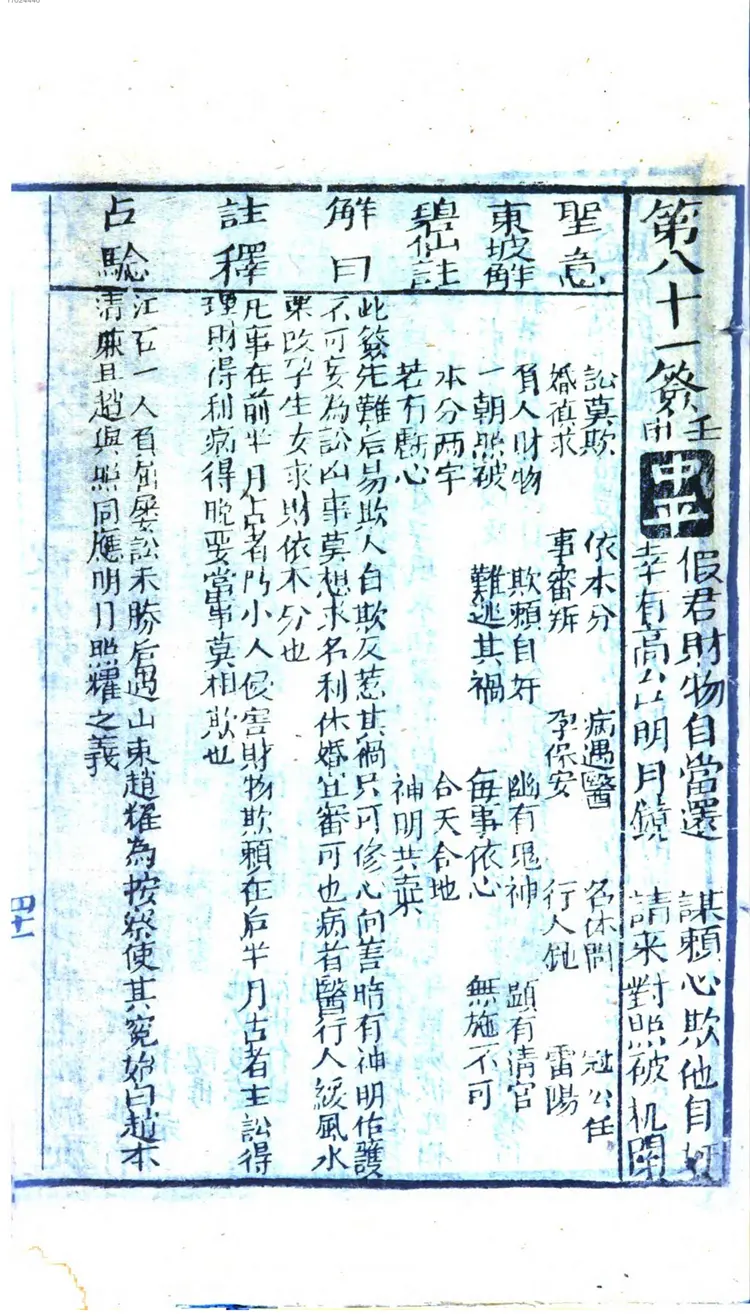 第八十一簽 壬申 中平
假君財物自當還 謀賴心欺他自奸
幸有高台明月鏡 請來對照破机関
聖意
訟莫欺 依本分 病遇醫 名休問 冦公任
婚直求 事審辨 孕保安 行人 雷陽
東坡解
負人財物 欺賴自奸 幽有鬼神 顕有清官
一朝照破 難逃其禍 每事依心 無施不可
碧仙註
本分両字 合天合地
若有虧心 神明共棄
解曰
此簽先難后昜欺人自欺反惹其禍只可修心向善暗有神明佑護
不可妄為訟凶事莫想求名利休婚宜審可也病者醫行人緩風水
栗改孕生女求財依本分也
註釋
凡事在前半月占者門小人侵害財物欺賴在后半月占者主訟得
理財得利病得脫要當事莫相欺也
占騐
江右一人負屈屡訟未勝后遇山東趙耀為按察使其寃始白趙本
清亷且趙與照同應明月照耀之義
四十一